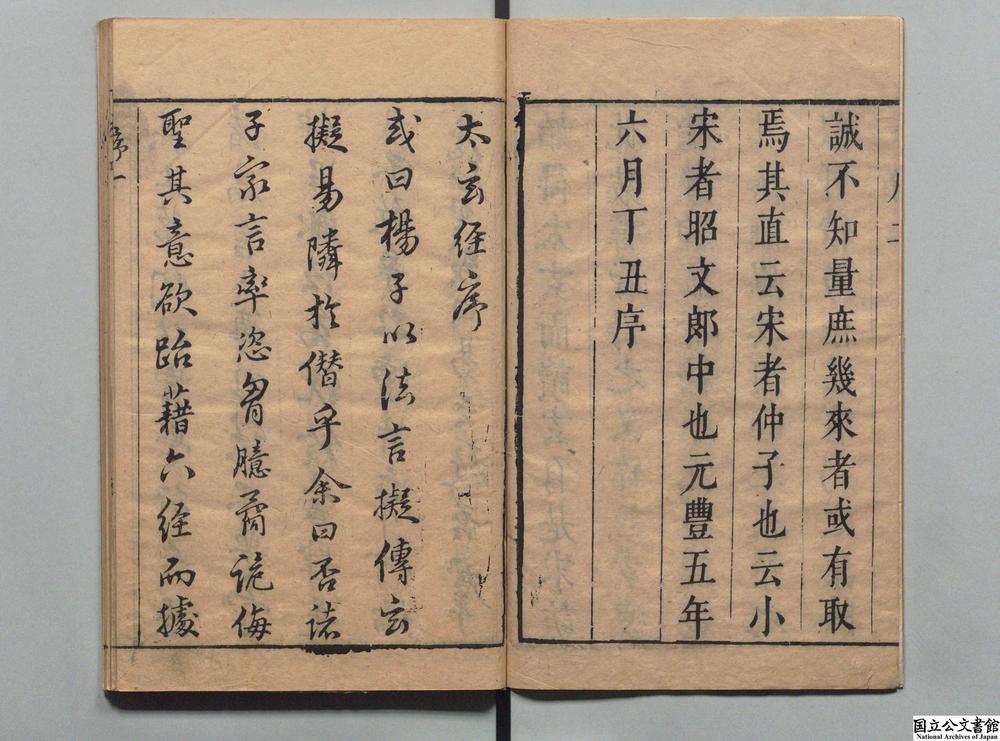 誠不知量庶幾來者或有取
焉其直云宋者仲子也云小
宋者昭文郎中也元豐五年
六月丁丑序
太玄經序
或曰楊子以法言擬傳玄
擬易隣於僭乎余曰否諸
子家言率恣胷臆矞詭侮
聖其意欲跆藉六经而據
序一
国立公文書館
National Archives of Japan